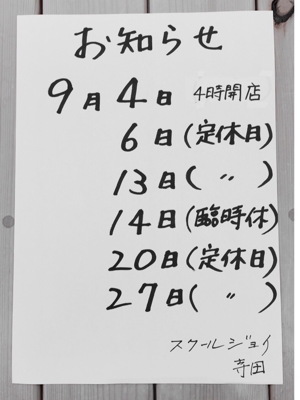 お知らせ
9月4日 4時開店
6日(定休日)
13日( 〃 )
14日(臨時休)
20日(定休日)
27日( 〃 )
スクールジョイ
寺田